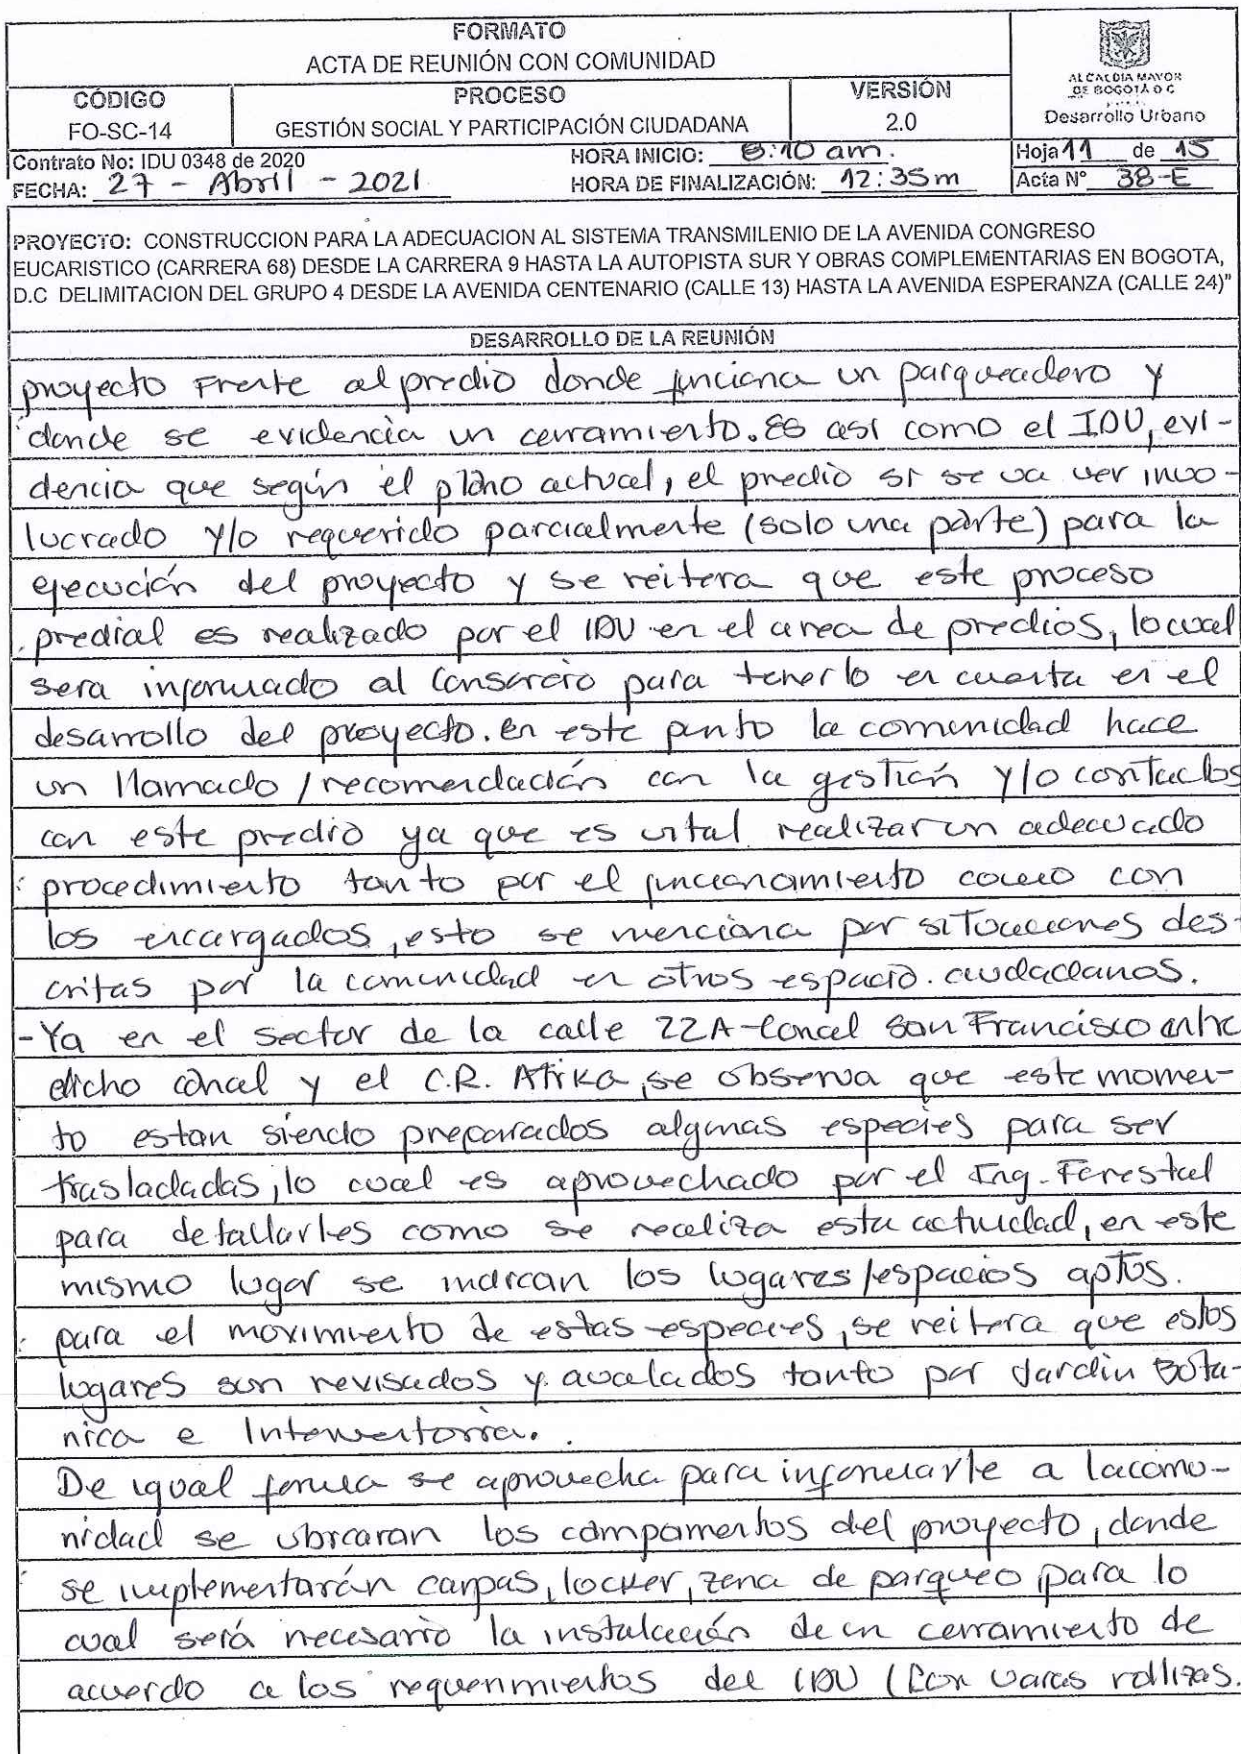 FORMATO
ACTA DE REUNIÓN CON COMUNIDAD
CÓDIGO
FO-SC-14
PROCESO
GESTIÓN SOCIAL Y PARTICIPACIÓN CIUDADANA
VERSIÓN
2.0
ALCALDIA MAYOR
DE BOGOTÁ D C
Desarrollo Urbano
Contrato No: IDU 0348 de 2020
HORA INICIO: 8:10 am.
Hoja 11 de 15
FECHA: 27 - Abril - 2021
HORA DE FINALIZACIÓN: 12:35m
Acta N° 38-E
PROYECTO: CONSTRUCCION PARA LA ADECUACION AL SISTEMA TRANSMILENIO DE LA AVENIDA CONGRESO
EUCARISTICO (CARRERA 68) DESDE LA CARRERA 9 HASTA LA AUTOPISTA SUR Y OBRAS COMPLEMENTARIAS EN BOGOTA,
D.C DELIMITACION DEL GRUPO 4 DESDE LA AVENIDA CENTENARIO (CALLE 13) HASTA LA AVENIDA ESPERANZA (CALLE 24)"
DESARROLLO DE LA REUNIÓN
proyecto Frente al predio donde funciona un parqueadero y
donde se evidencia un cerramiento. Es así como el IDU, evi-
dencia que según el plano actual, el predio si se va ver invo-
lucrado y/o requerido parcialmente (solo una parte) para la
ejecución del proyecto y se reitera que este proceso
predial es realizado por el IDU en el area de predios, lo cual
sera informado al Consorcio para tenerlo en cuenta en el
desarrollo del proyecto. en este punto la comunidad hace
un llamado / recomendación con la gestión y/o contactos
con este predio ya que es vital realizar un adecuado
procedimiento tanto por el funcionamiento como con
los encargados, esto se menciona por situaciones des-
critas por la comunidad en otros espacio. ciudadanos.
- Ya en el sector de la calle 22A - Canal San Francisco entre
dicho canal y el C.R. Afrika, se observa que este momen-
to estan siendo preparados algunas especies para ser
trasladadas, lo cual es aprovechado por el Ing. Forestal
para detallarles como se realiza esta actividad, en este
mismo lugar se indican los lugares/espacios aptos.
para el movimiento de estas especies, se reitera que estos
lugares son revisados y avalados tanto por Jardin Bota-
nica e Interventoria.
De igual forma se aprovecha para informarle a la comu-
nidad se ubicaran los campamentos del proyecto, donde
se implementarán carpas, locker, zona de parqueo, para lo
cual será necesario la instalación de un cerramiento de
acuerdo a los requerimientos del IDU (Con varas rollizas.